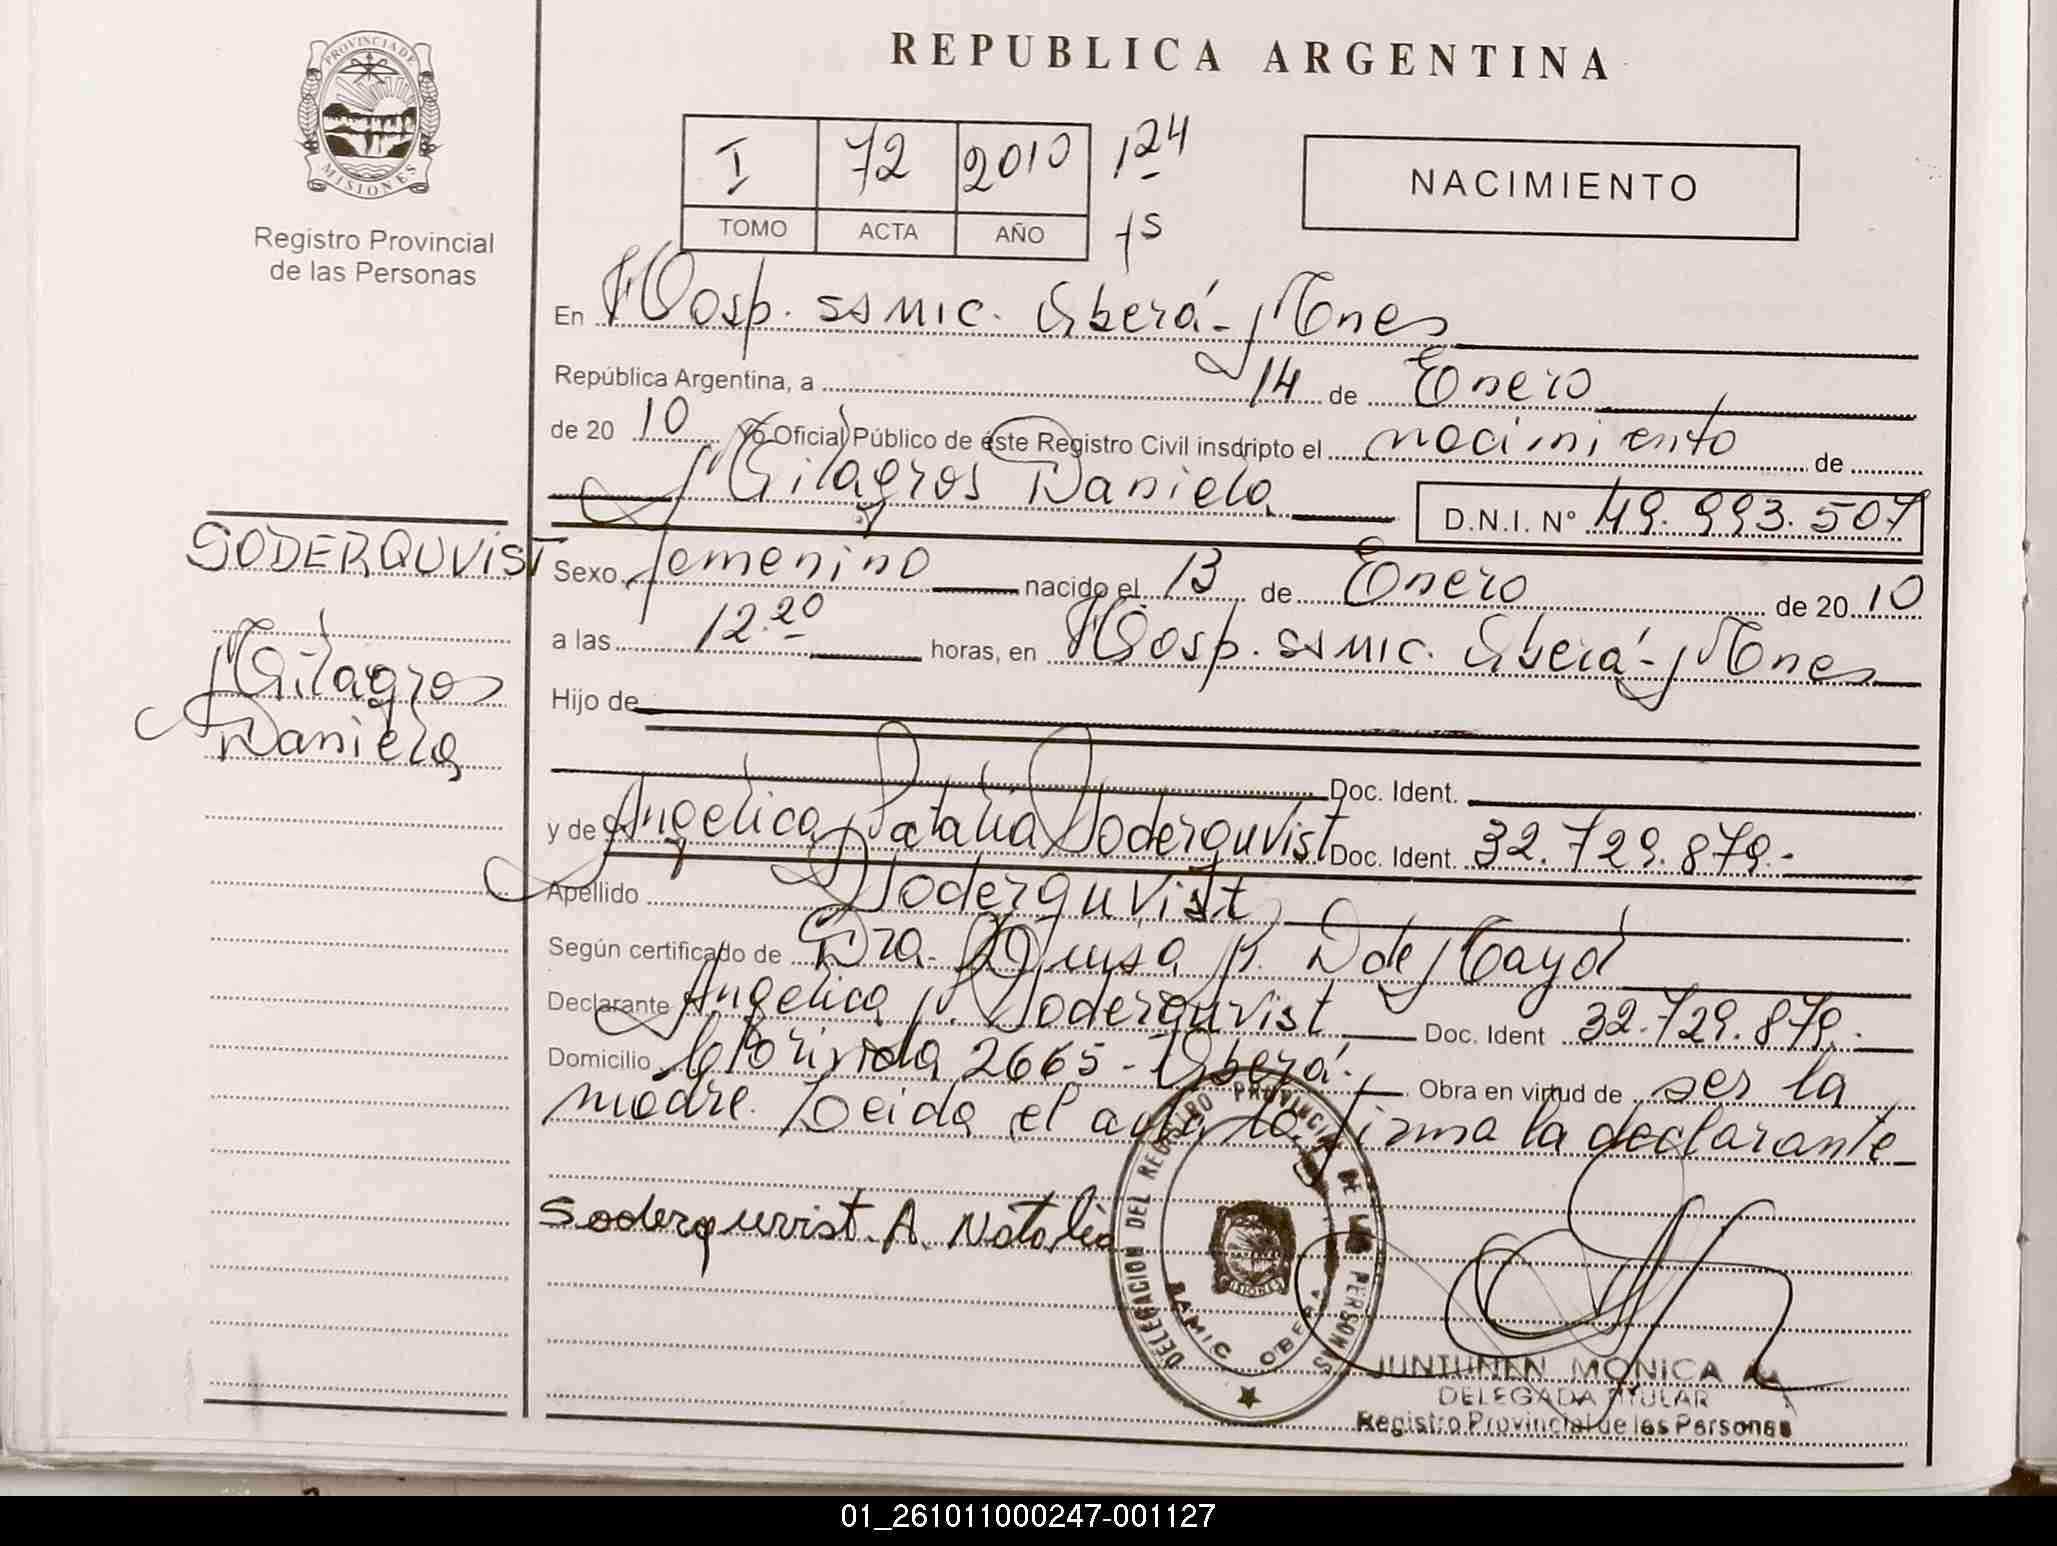 PROVINCIA DE
MISIONES
Registro Provincial
de las Personas
REPUBLICA ARGENTINA
I 72 2010 124
TOMO ACTA AÑO fs
NACIMIENTO
En Hosp. SAMIC. Oberá - Mnes
República Argentina, a 14 de Enero
de 20 10 Yo Oficial Público de éste Registro Civil inscripto el nacimiento de
Milagros Daniela D.N.I. N° 49.993.507
SODERQUVIST
Milagros
Daniela
Sexo femenino nacido el 13 de Enero de 20 10
a las 12.20 horas, en Hosp. SAMIC. Oberá - Mnes
Hijo de
Doc. Ident.
y de Angélica Natalia Soderquvist Doc. Ident. 32.729.879.-
Apellido Soderquvist
Según certificado de Dra. P.
Declarante Angélica N. Soderquvist Doc. Ident 32.729.879.-
Domicilio 2665 - Oberá. Obra en virtud de ser la
madre. Leida el acta la firma la declarante
Soderquvist. A. Natalia
DELEGACION DEL REGISTRO PROVINCIAL DE LAS PERSONAS
MISIONES
SAMIC OBERA
JUNTUNEN MONICA
DELEGADA TITULAR
Registro Provincial de las Personas
01_261011000247-001127